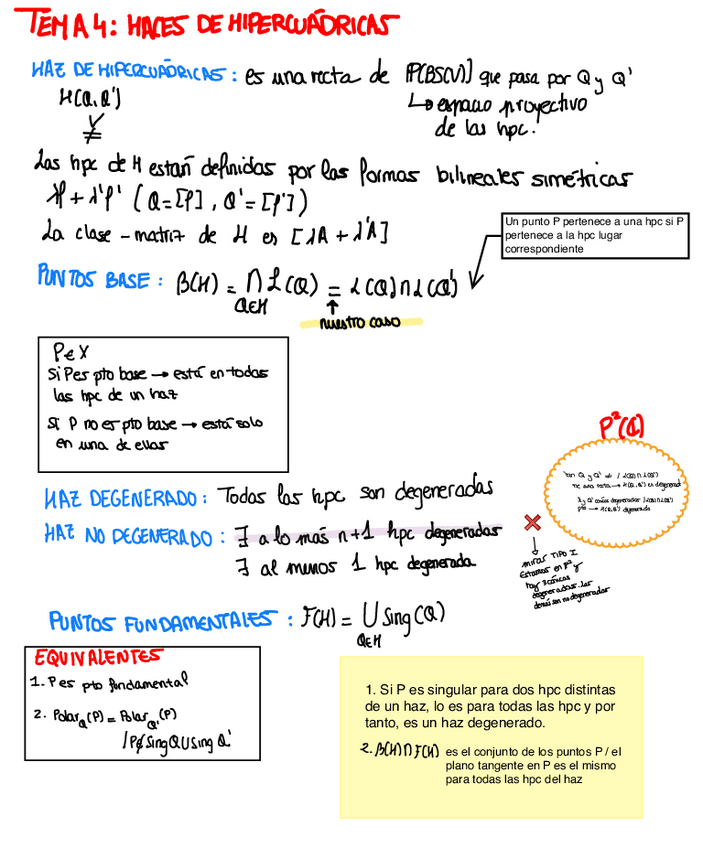 TEMA 4: HACES DE HIPERCUÁDRICAS
HAZ DE HIPERCUÁDRICAS: es una recta de P[BS(V)] que pasa por Q y Q'
H(Q,Q')
↳ espacio proyectivo
de las hpc.
≠
Las hpc de H están definidas por las formas bilineales simétricas
λφ + λ'φ' (Q=[φ], Q'=[φ'])
La clase-matriz de H es [λA + λ'A]
Un punto P pertenece a una hpc si P
pertenece a la hpc lugar
correspondiente
PUNTOS BASE: B(H) = ∩ L(Q) = L(Q)∩L(Q')
Q∈H
↑
nuestro caso
P∈X
Si P es pto base → está en todas
las hpc de un haz
Si P no es pto base → está solo
en una de ellas
P²(Q)
HAZ DEGENERADO: Todas las hpc son degeneradas
HAZ NO DEGENERADO: ∃ a lo más n+1 hpc degeneradas
∃ al menos 1 hpc degenerada
mirar TIPO I
Estamos en P² y
hay 3 cónicas
degeneradas. Las
demás son no degeneradas
PUNTOS FUNDAMENTALES: F(H) = ∪ Sing(Q)
Q∈H
EQUIVALENTES
1. P es pto fundamental
2. Polar_Q(P) = Polar_Q'(P)
/P∉SingQ∪SingQ'
1. Si P es singular para dos hpc distintas
de un haz, lo es para todas las hpc y por
tanto, es un haz degenerado.
2. B(H)∩F(H) es el conjunto de los puntos P / el
plano tangente en P es el mismo
para todas las hpc del haz